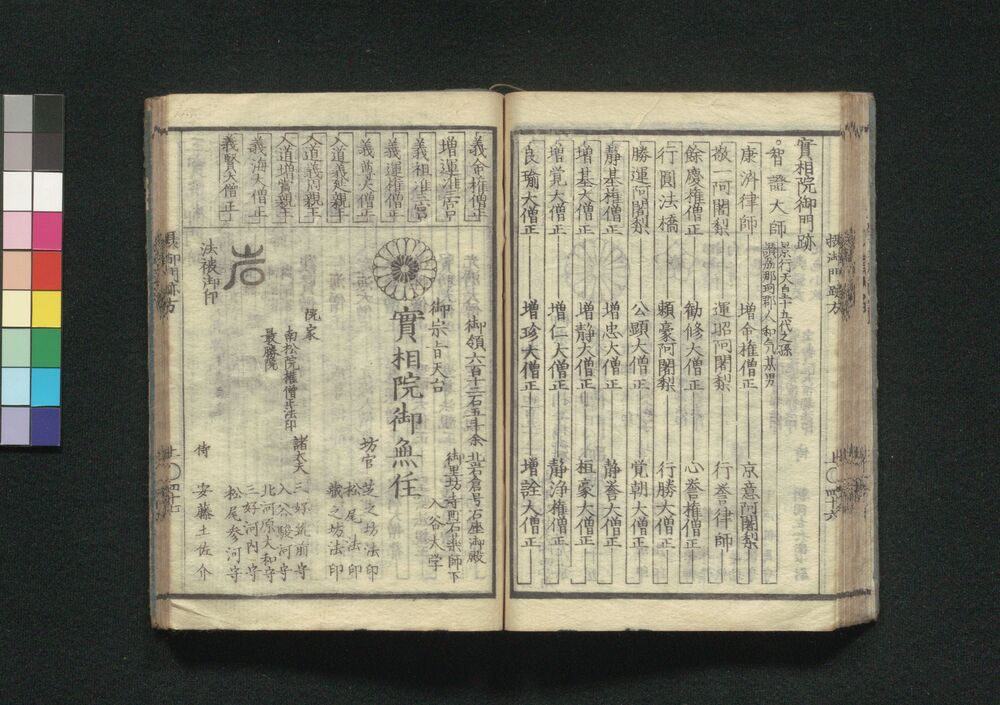 實相院御門跡
智證大師
景行天皇二十五代之孫
讃岐那珂郡人和気某男
康済律師
増命権僧正
京意阿闍梨
敬一阿闍梨
運昭阿闍梨
行誉律師
餘慶権僧正
勧修大僧正
心誉権僧正
行圓法橋
頼豪阿闍梨
行勝大僧正
勝運阿闍梨
公顕大僧正
覚朝大僧正
静基権僧正
増忠大僧正
静誉大僧正
増基大僧正
増静大僧正
桓豪大僧正
増覚大僧正
増仁大僧正
静浄権僧正
良瑜大僧正
増珍大僧正
増詮大僧正
摂御門跡方
上〇四十六
義命権僧正
増運准三宮
義祖准三宮
義運権僧正
義尊大僧正
入道義延親王
入道義周親王
入道増賞親王
義海大僧正
義賢大僧正
御領六百十二石五斗余
北岩倉号石座御殿
御里坊寺町石薬師下
御宗旨天台
入谷大学
實相院御無住
坊官
芝之坊法印
松尾法印
岸之坊法印
院家
南松院権僧正法印
最勝院
諸大夫
三好筑前守
入谷駿河守
北河原大和守
三好河内守
松尾参河守
岩
法被御印
侍
安藤土佐介
摂御門跡方
上〇四十七